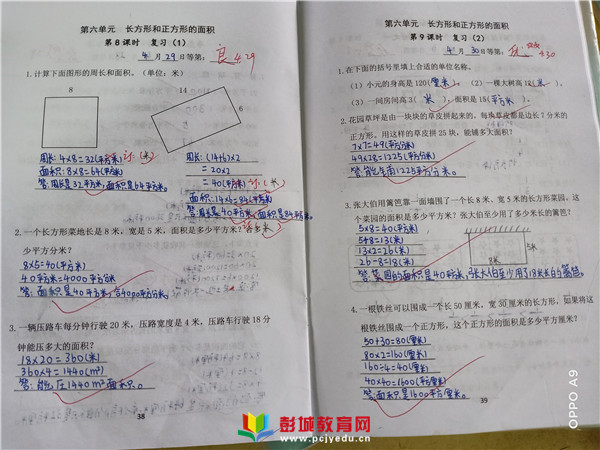 第六单元 长方形和正方形的面积
第8课时 复习(1)
4月29日等第: 良 4.29
1.计算下面图形的周长和面积。(单位:米)
8
14
6
周长:4×8=32(平方米)订(米)
面积:8×8=64(平方米)
答:周长是32平方米,面积是64平方米。
周长:(14+6)×2
=20×2
=40(平方米)订(米)
面积:14×6=84(平方米)
答:周长是40平方米,面积是84平方米。
2.一个长方形菜地长是8米,宽是5米,面积是多少平方米?合多少平方分米?
8×5=40(平方米)
40平方米=4000平方分米
答:面积是40平方米,合4000平方分米。
3.一辆压路车每分钟行驶20米,压路宽度是4米,压路车行驶18分
钟能压多大的面积?
18×20=360(米)
360×4=1440(m²)
答:能压1440m²面积。
38
第六单元 长方形和正方形的面积
第9课时 复习(2)
4月30日等第:
1.在下面的括号里填上合适的单位名称。
(1)小元的身高是120(厘米)。 (2)一棵大树高12(米)。
(3)一间房间高3(米),面积是15(平方米)。
2.花园草坪是由一块块的草皮拼起来的,每块草皮都是边长7分米的
正方形。用这样的草皮拼25块,能铺多大面积?
7×7=49(平方分米)
49×25=1225(平方分米)
答:能占面1225平方分米。
3.张大伯用篱笆靠一面墙围了一个长8米、宽5米的长方形菜园。这
个菜园的面积是多少平方米?张大伯至少用了多少米长的篱笆?
5×8=40(平方米)
5+8=13(米)
13×2=26(米)
26-8=18(米)
5米
8米
答:菜园的面积是40平方米,张大伯至少用了18米长的篱笆。
4.一根铁丝可以围成一个长50厘米,宽30厘米的长方形,如果将这
根铁丝围成一个正方形,这个正方形的面积是多少平方厘米?
50+30=80(厘米)
80×2=160(厘米)
160÷4=40(厘米)
40×40=1600(平方厘米)
答:面积是1600平方厘米。
39
OPPO A9
彭城教育网
www.pcjyedu.cn